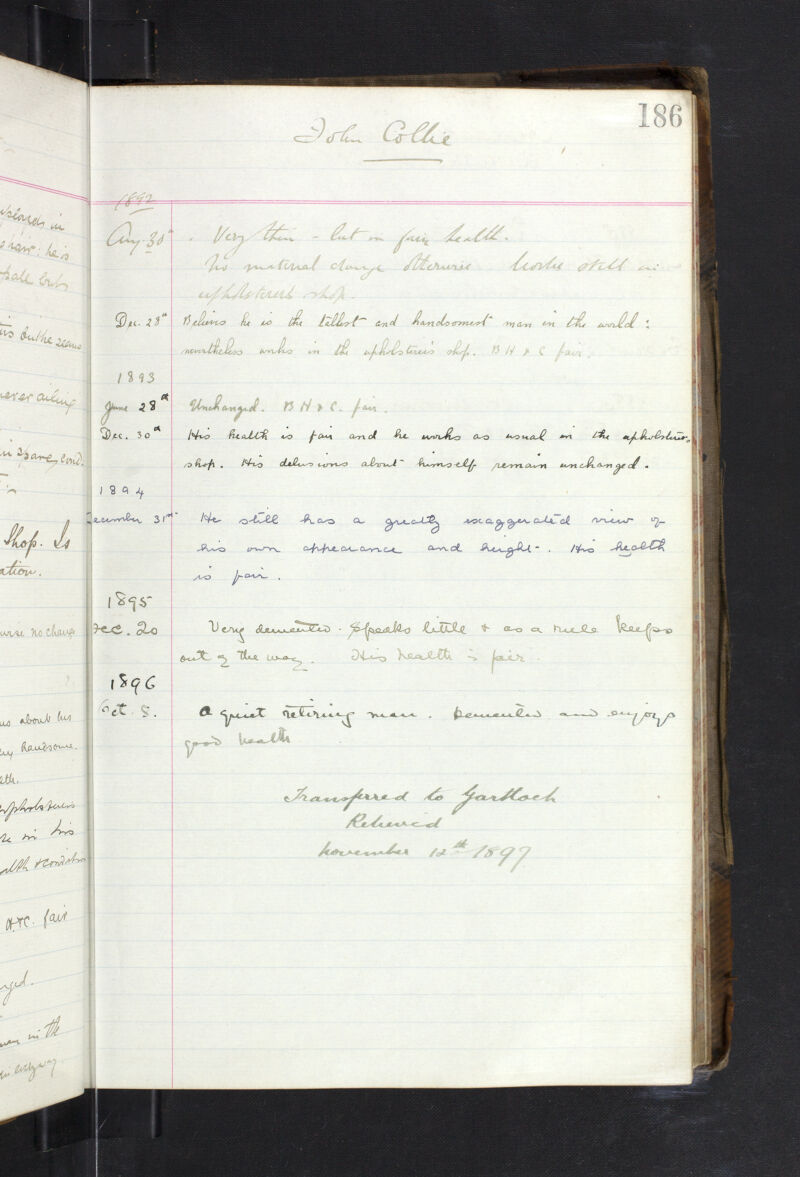 186
John Collie
1892
Aug. 30th . Very thin - but in fair health.
No material change otherwise Works still in
upholsterers shop.
Dec. 28th Believes he is the tallest and handsomest man in the world:
nevertheless works in the upholsterer's shop. B H & C fair.
1893
June 28th Unchanged. B H & C. fair.
Dec. 30th His health is fair and he works as usual in the upholsterers
shop. His delusions about himself remain unchanged.
1894
December 31st He still has a greatly exaggerated view of
his own appearance and height. His health
is fair.
1895
Dec. 20 Very demented. Speaks little & as a rule keeps
out of the way. His health is fair.
1896
Oct. 5. A quiet retiring man. Demented and enjoys
good health
Transferred to Gartloch
Relieved
November 12th 1897
in
hair: he is
pale but
but he seems
never ailing
in spare cond.
Shop. Is
ation.
no change
about his
handsome.
upholsterers
in his
health & condition
H. & C. fair
in the
in everyway